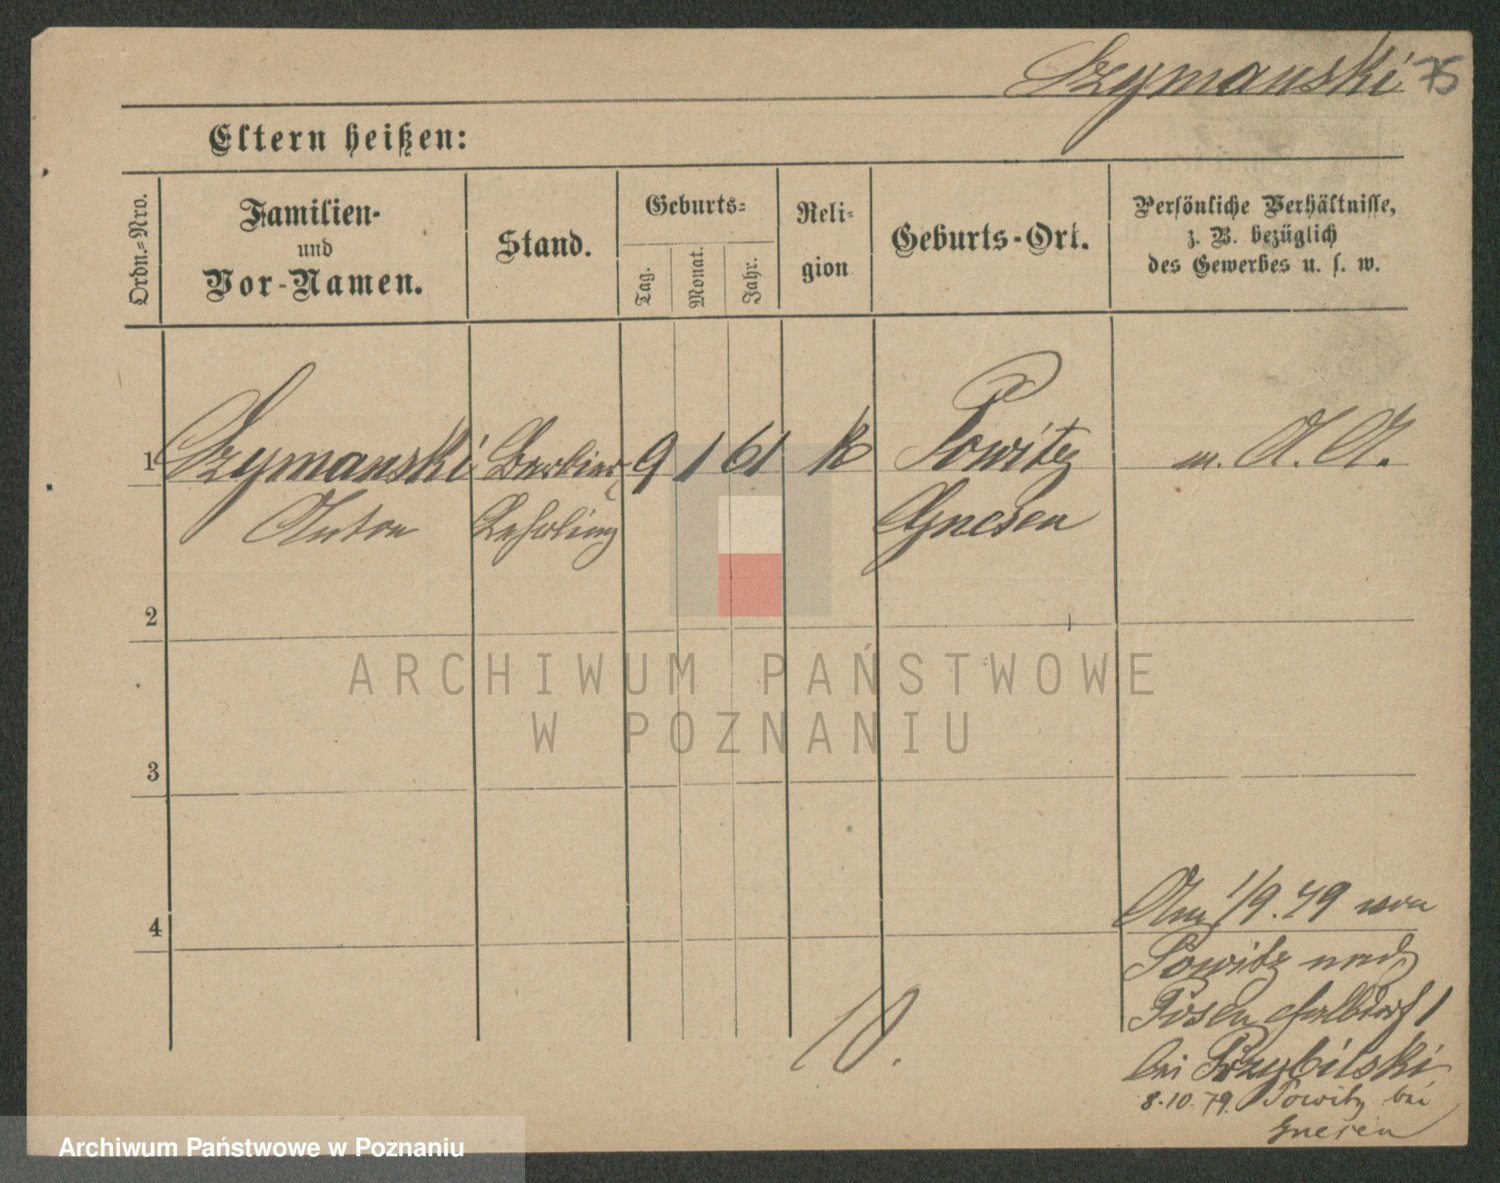 Szymanski 75
Eltern heißen:
Ordn.=Nro.
Familien-
und
Vor-Namen.
Stand.
Geburts=
Tag.
Monat.
Jahr.
Reli-
gion
Geburts-Ort.
Persönliche Verhältnisse,
z. B. bezüglich
des Gewerbes u. s. w.
1 Szymanski Barbier 9 1 61 k Powitz m. A. A.
Anton Lehrling Gnesen
2
ARCHIWUM PAŃSTWOWE
W POZNANIU
3
4
Am 1/9.79 von
Powitz nach
Posen Halbdorf 1
bei Przybilski
8.10.79. Powitz bei
Gnesen
Archiwum Państwowe w Poznaniu